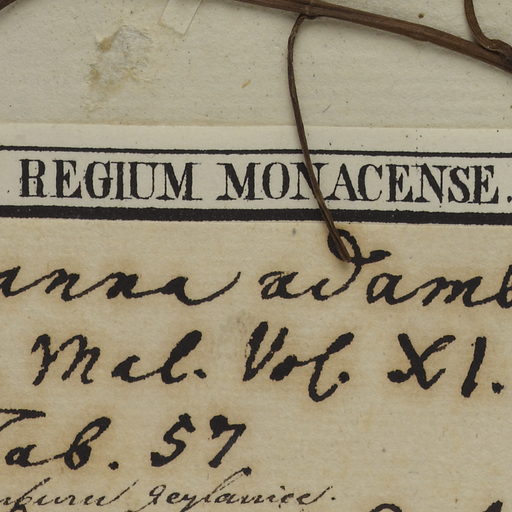 REGIUM MONACENSE.
anna adamb
Mal. Vol. XI.
Tab. 57
zeylanice.